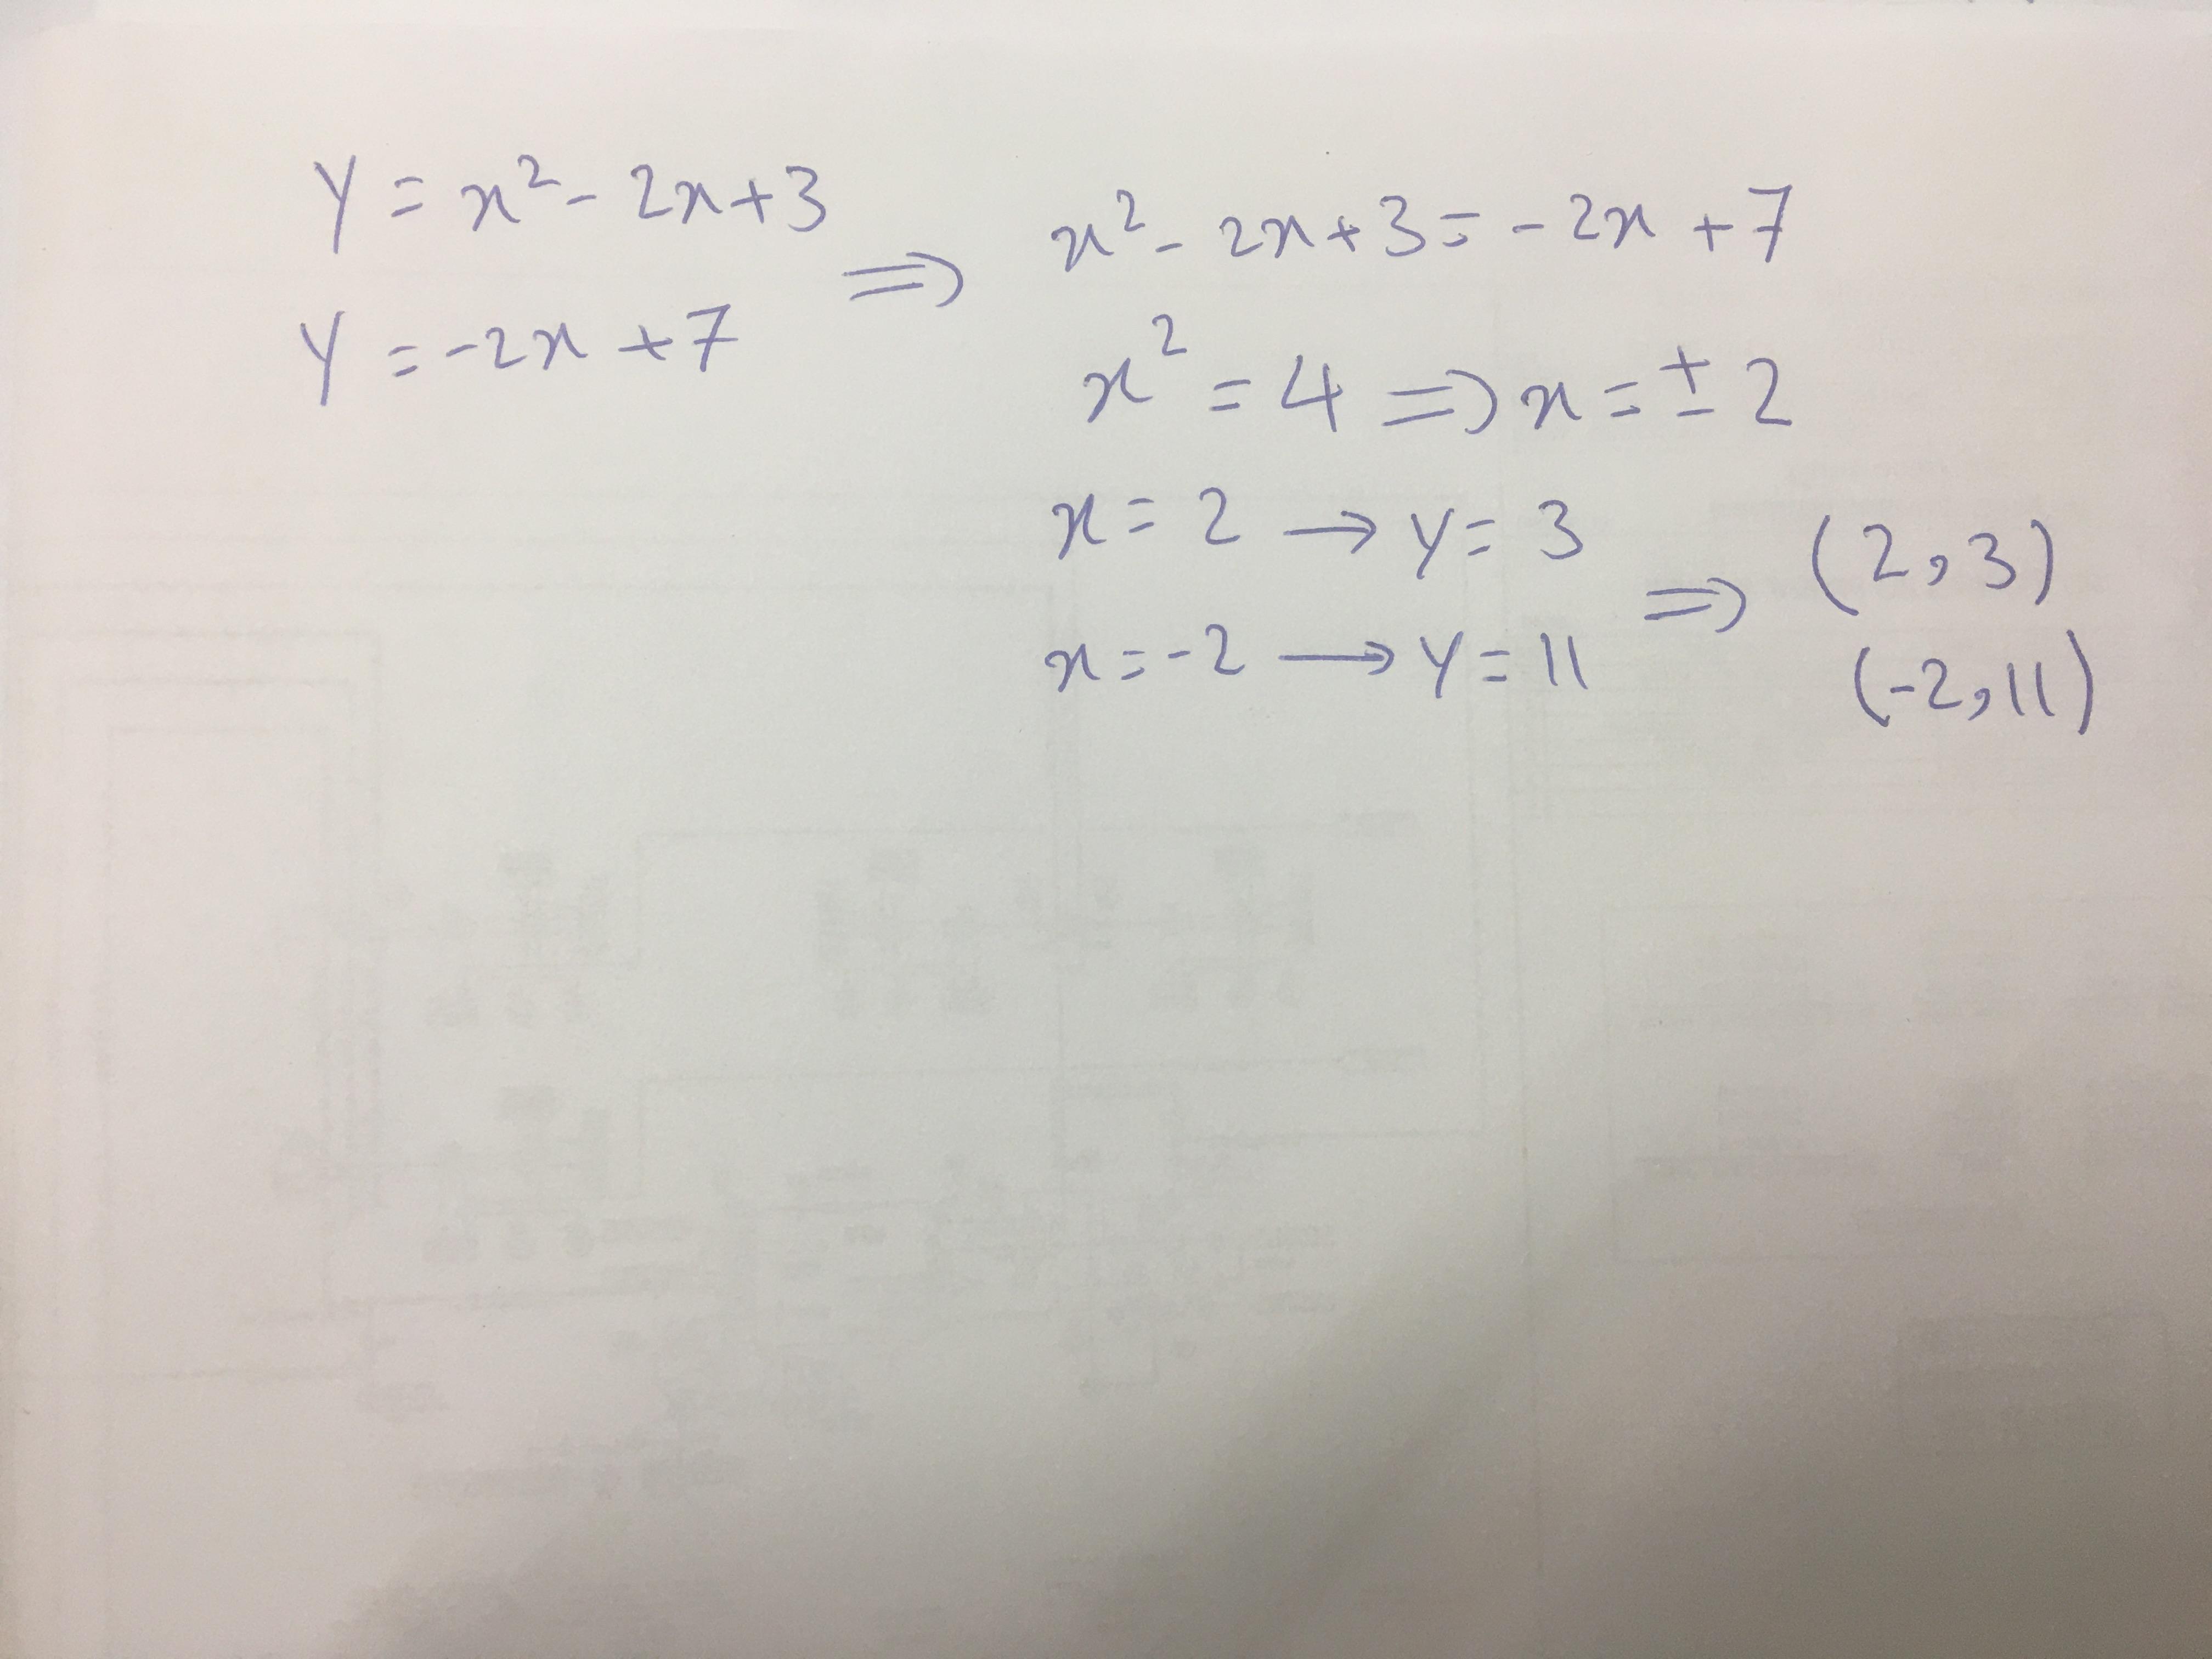 y = x² - 2x + 3
y = -2x + 7
⇒ x² - 2x + 3 = -2x + 7
x² = 4 ⇒ x = ± 2
x = 2 → y = 3
x = -2 → y = 11
⇒ (2, 3)
(-2, 11)